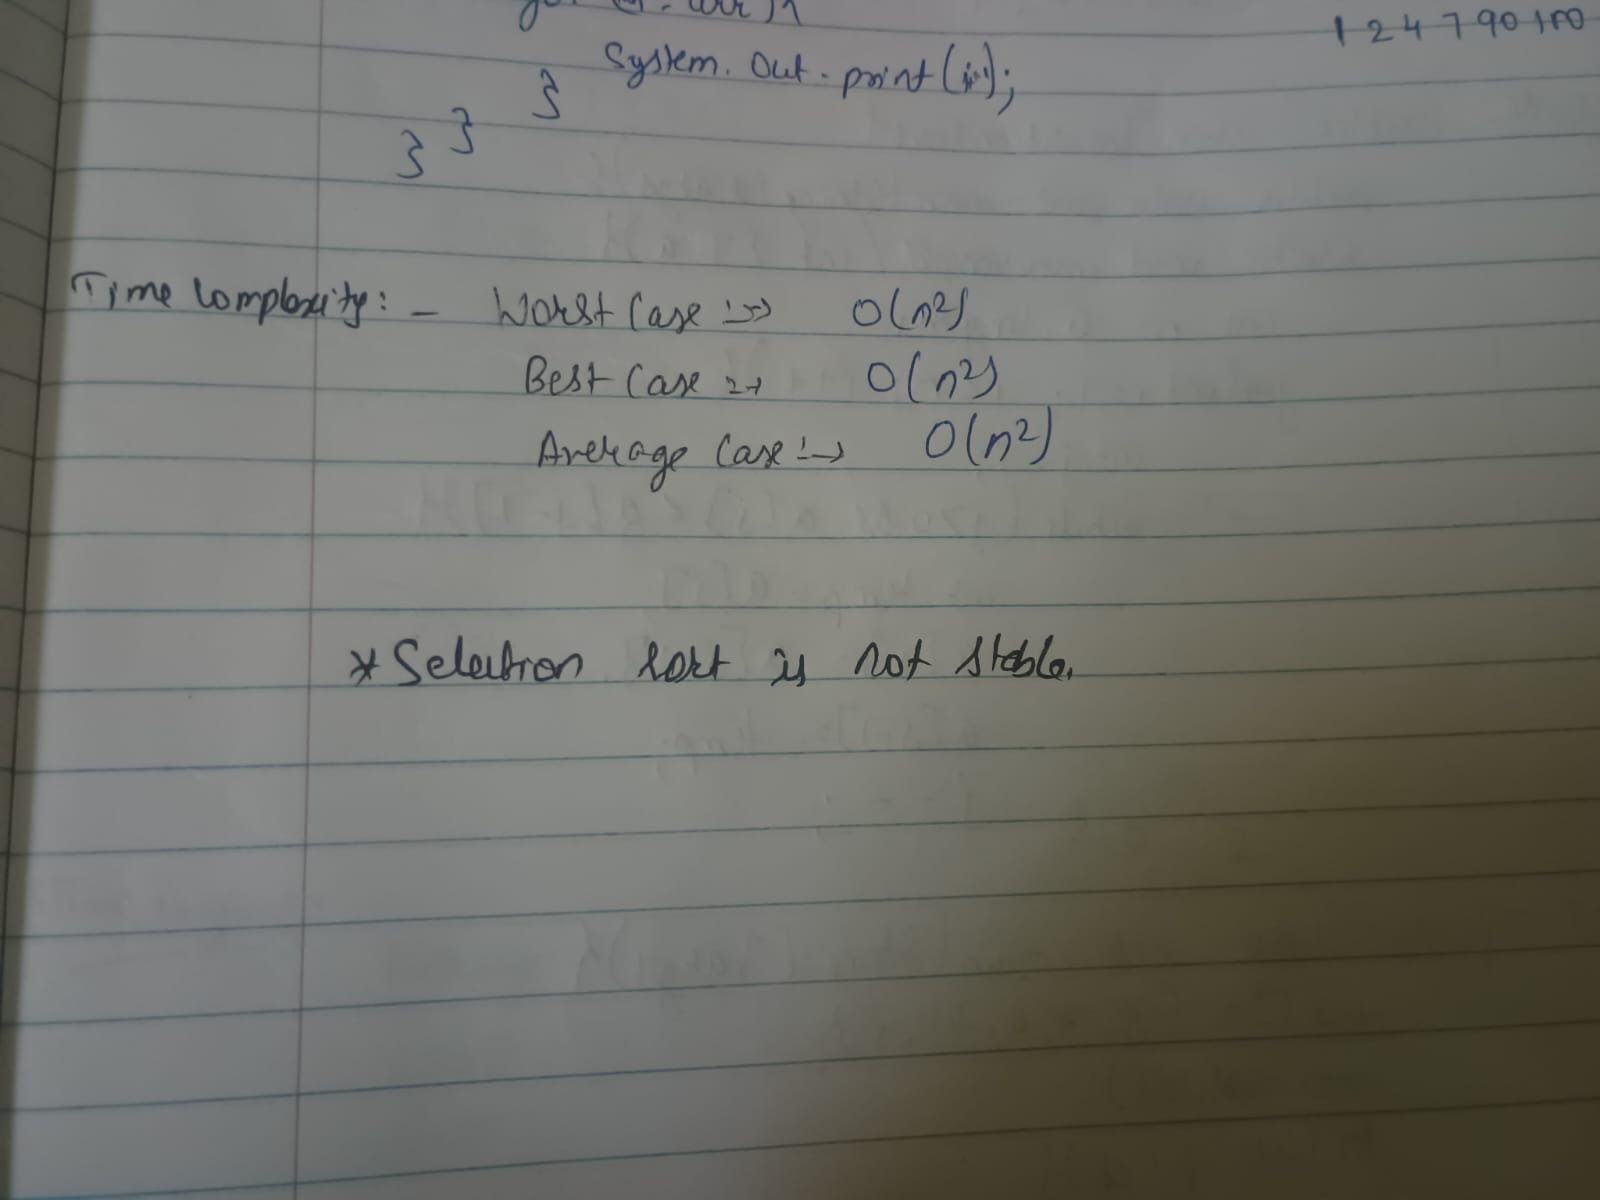 1 2 4 7 90 100
System.out.print(i);
}
}
}
Time Complexity: - Worst Case :-> O(n²)
Best Case :-> O(n²)
Average Case :-> O(n²)
* Selection sort is not stable.